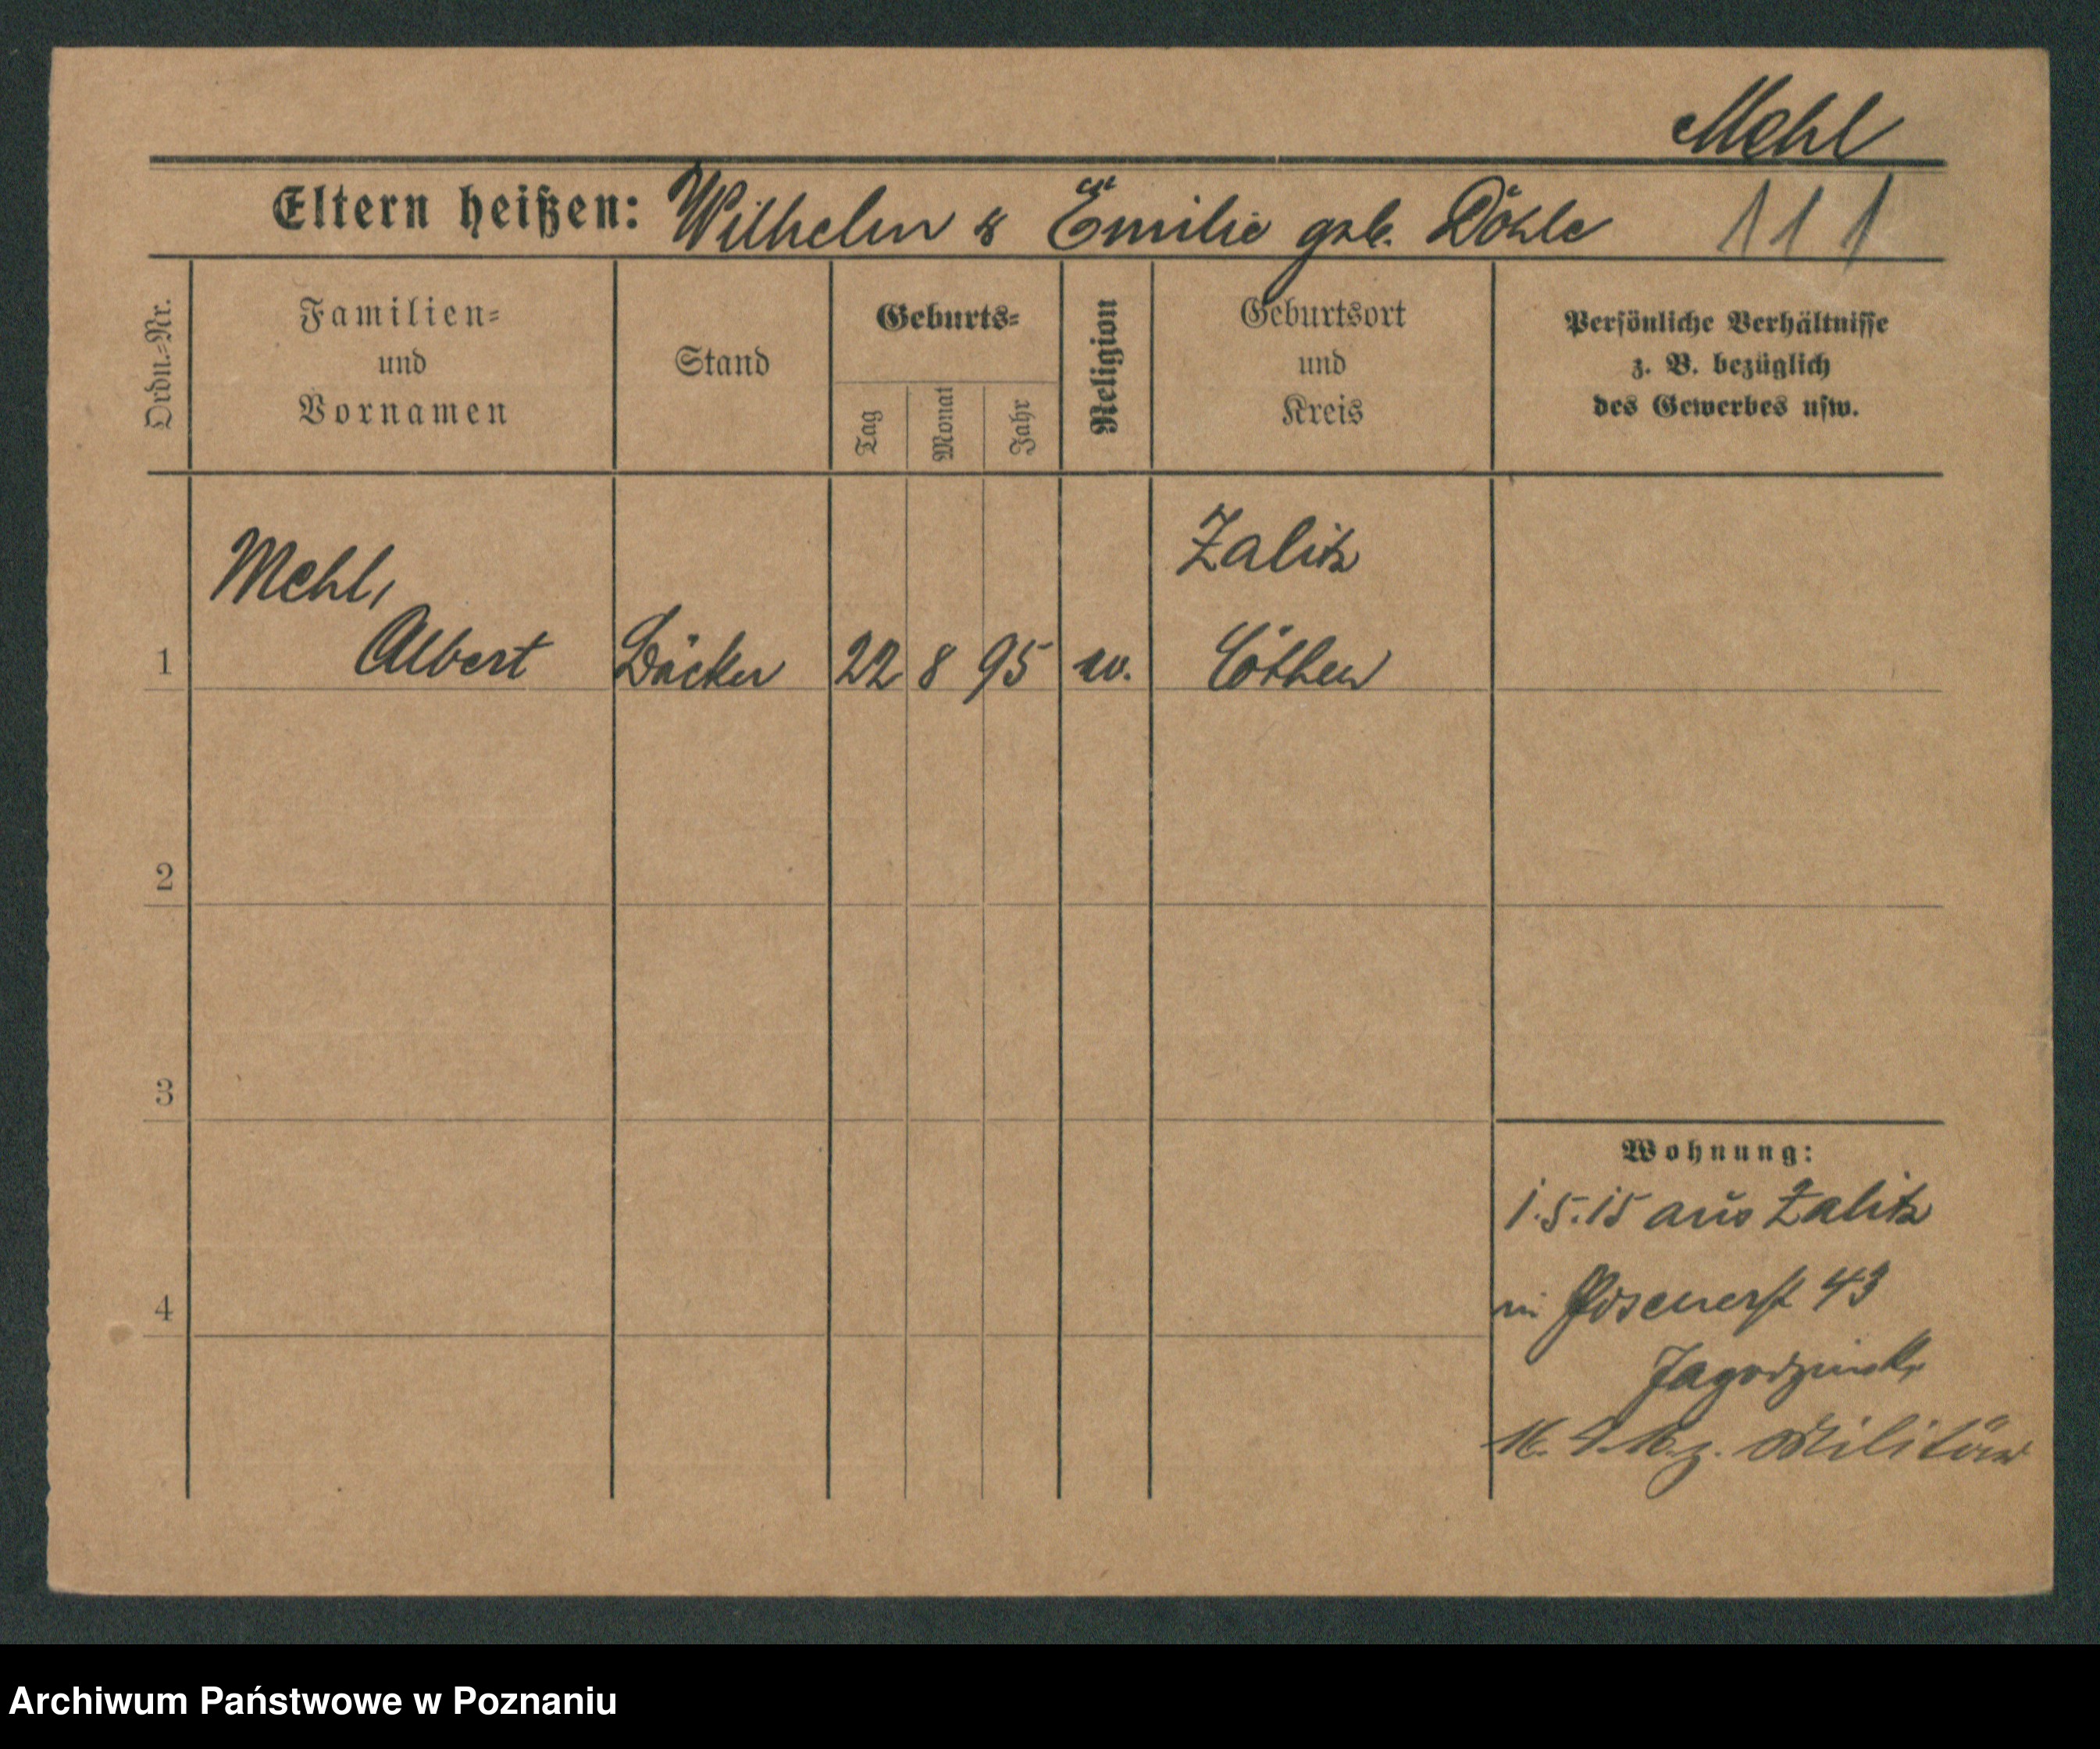 Mehl
Eltern heißen: Wilhelm & Emilie geb. Döhle 111
Ordn.-Nr.
Familien-
und
Vornamen
Stand
Geburts-
Tag
Monat
Jahr
Religion
Geburtsort
und
Kreis
Persönliche Verhältnisse
z. B. bezüglich
des Gewerbes usw.
Mehl,
Zalitz
1 Albert Bäcker 22 8 95 ev. Cöthen
2
3
Wohnung:
1.5.15 aus Zalitz
in Posenerst 43
4
Jagodzinski
z. Militär
Archiwum Państwowe w Poznaniu